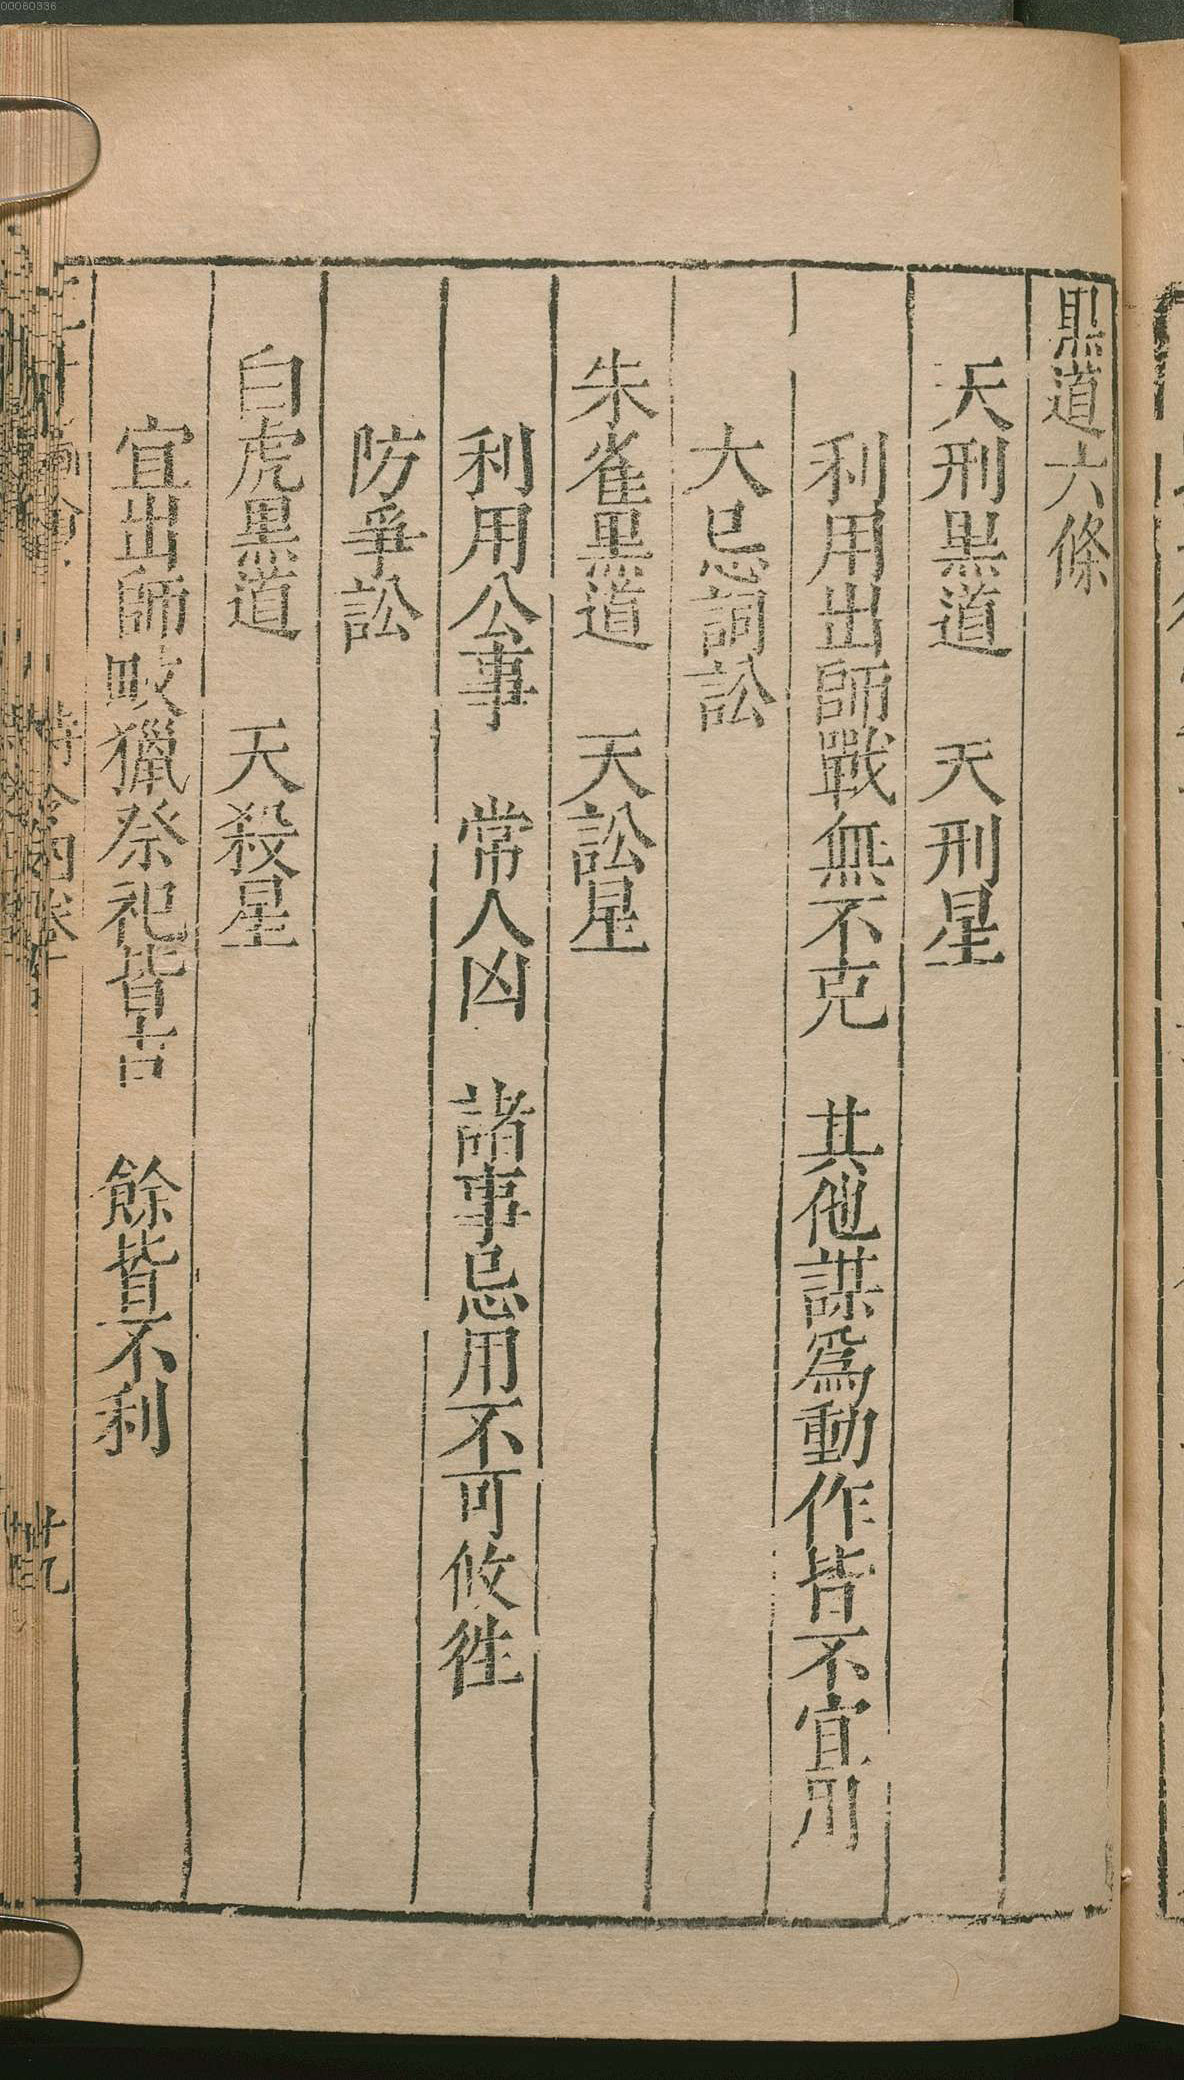 00060336
黑道六條
天刑黑道　天刑星
利用出師戰無不克　其他謀爲動作皆不宜用
大忌詞訟
朱雀黑道　天訟星
利用公事　常人凶　諸事忌用不可攸徃
防爭訟
白虎黑道　天殺星
宜出師畋獵祭祀皆吉　餘皆不利